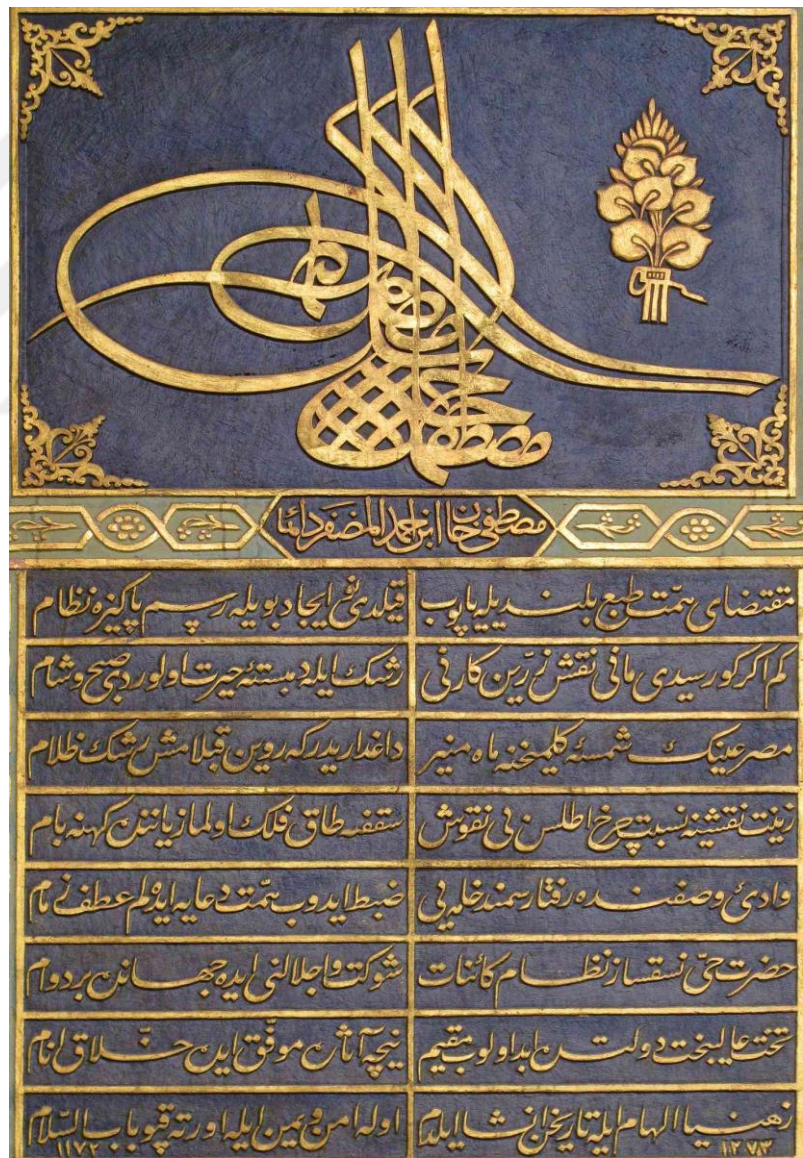 مصطفى خان ابن احمد المظفر دائما
مقتضاى همّت طبع بلنديله ياپوب
قيلدى نو ايجاد بويله رسم پاكيزه نظام
كم اكر كورسيدى مانى نقش زرّين كارنى
رشك ايله دمبسته حيرت اولوردى صبح وشام
شمسه ماه منير
داغداريدركه روين قپلامش رشك ظلام
زينت نقشينه نسبت چرخ اطلس بى نقوش
سقف طاق فلك اولماز ياننده كهنه بام
وادئ وصفنده رفتار سمند خامه يى
ضبط ايدوب همّت دعايه ايده لم عطف زمام
حضرت حقّ نسقساز نظام كائنات
شوكت واجلالنى ايده جهانده بردوام
تخت عاليبخت دولتده ابد اولوب مقيم
نيجه آثاره موفّق ايده خلاق انام
ذهنيا الهام ايله تاريخن انشا ايلدم ١٢٧٣
اوله امن ويمن ايله اورته قپو باب السّلام ١١٧٢